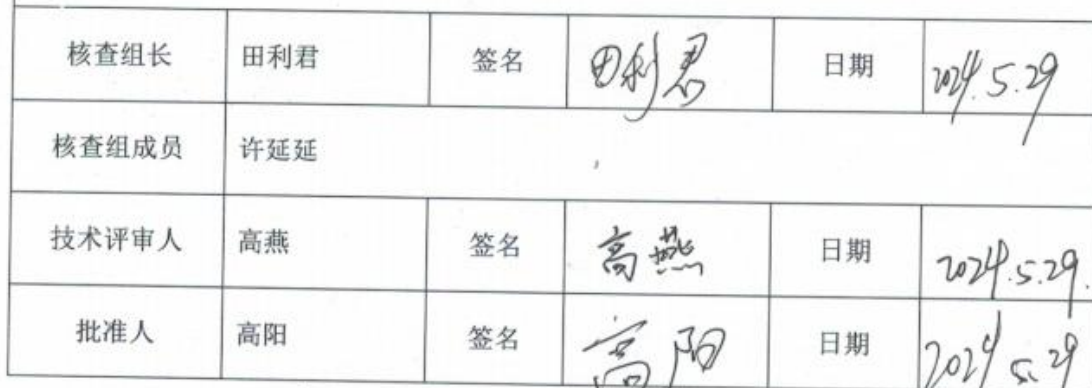 核查组长 田利君 签名 田利君 日期 2024.5.29
核查组成员 许延延
技术评审人 高燕 签名 高燕 日期 2024.5.29.
批准人 高阳 签名 高阳 日期 2024 5.29